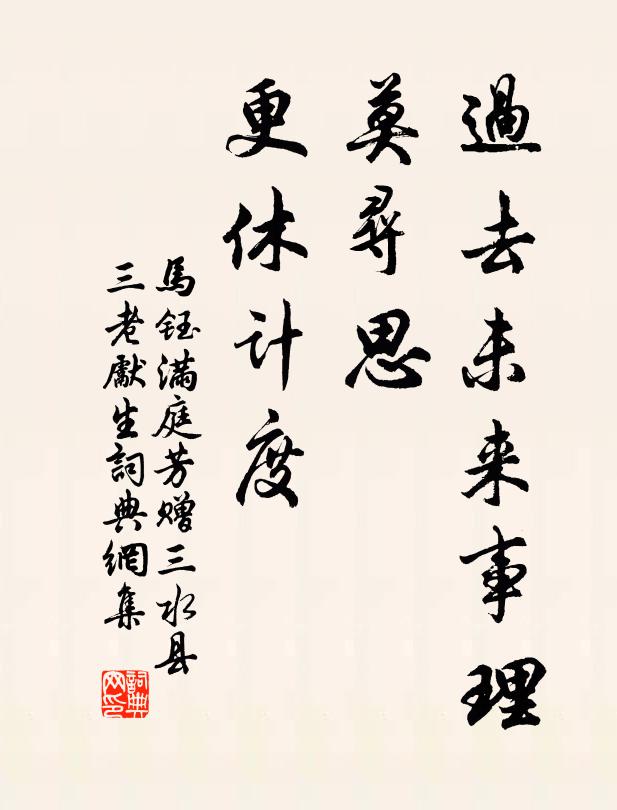 過去未来事理
莫尋思
更休计度
馬鈺满庭芳赠三水县
三老獻生詞典網集
詞典网印